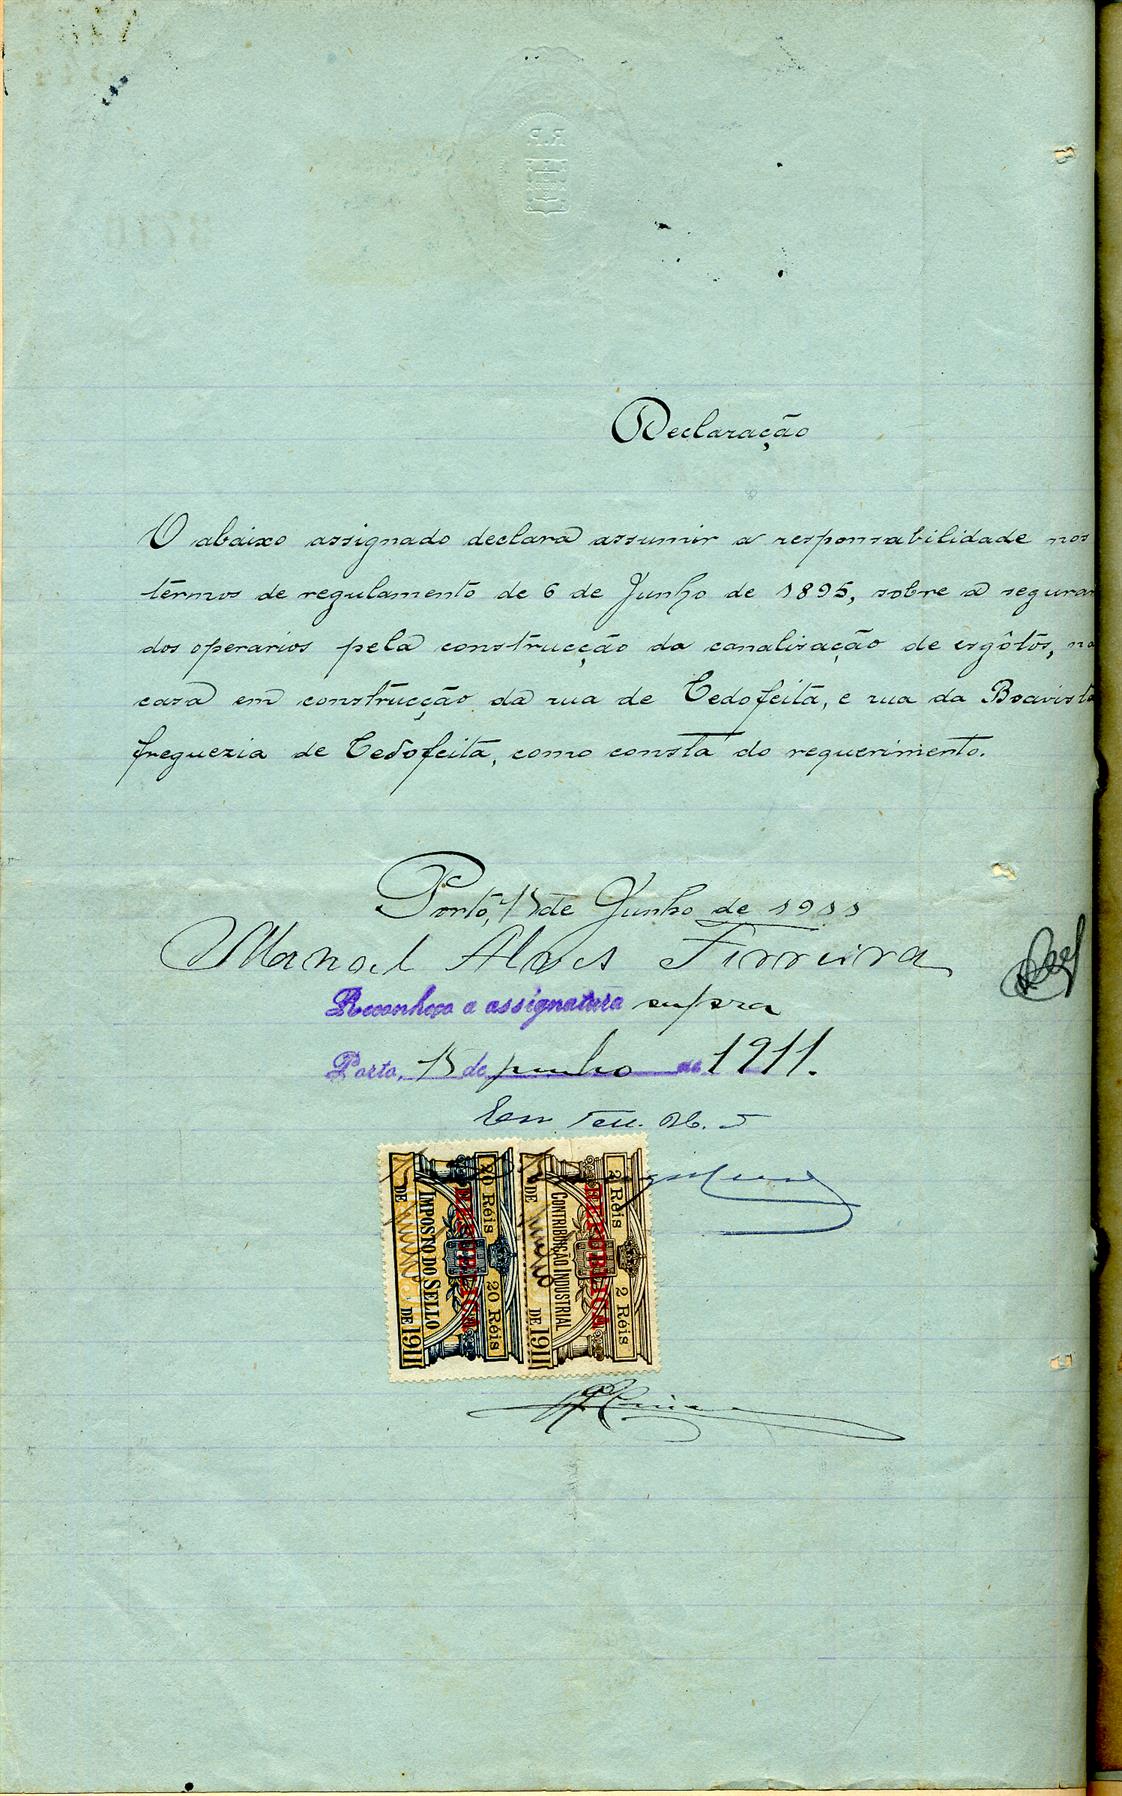 Declaração
O abaixo assignado declara assumir a responsabilidade nos
têrmos de regulamento de 6 de Junho de 1895, sobre a seguran
dos operarios pela construcção da canalisação de esgôtos, na
casa em construcção da rua de Cedofeita, e rua da Boavista
freguezia de Cedofeita, como consta do requerimento.
Porto, 15 de Junho de 1911
Manoel Alves Ferreira
Reconheço a assignatura supra
Porto, 15 de junho de 1911.
Em
20 Réis 20 Réis
REPUBLICA
IMPOSTO DO SELLO
DE DE 1911
2 Réis 2 Réis
REPUBLICA
CONTRIBUIÇÃO INDUSTRIAL
DE junho DE 1911